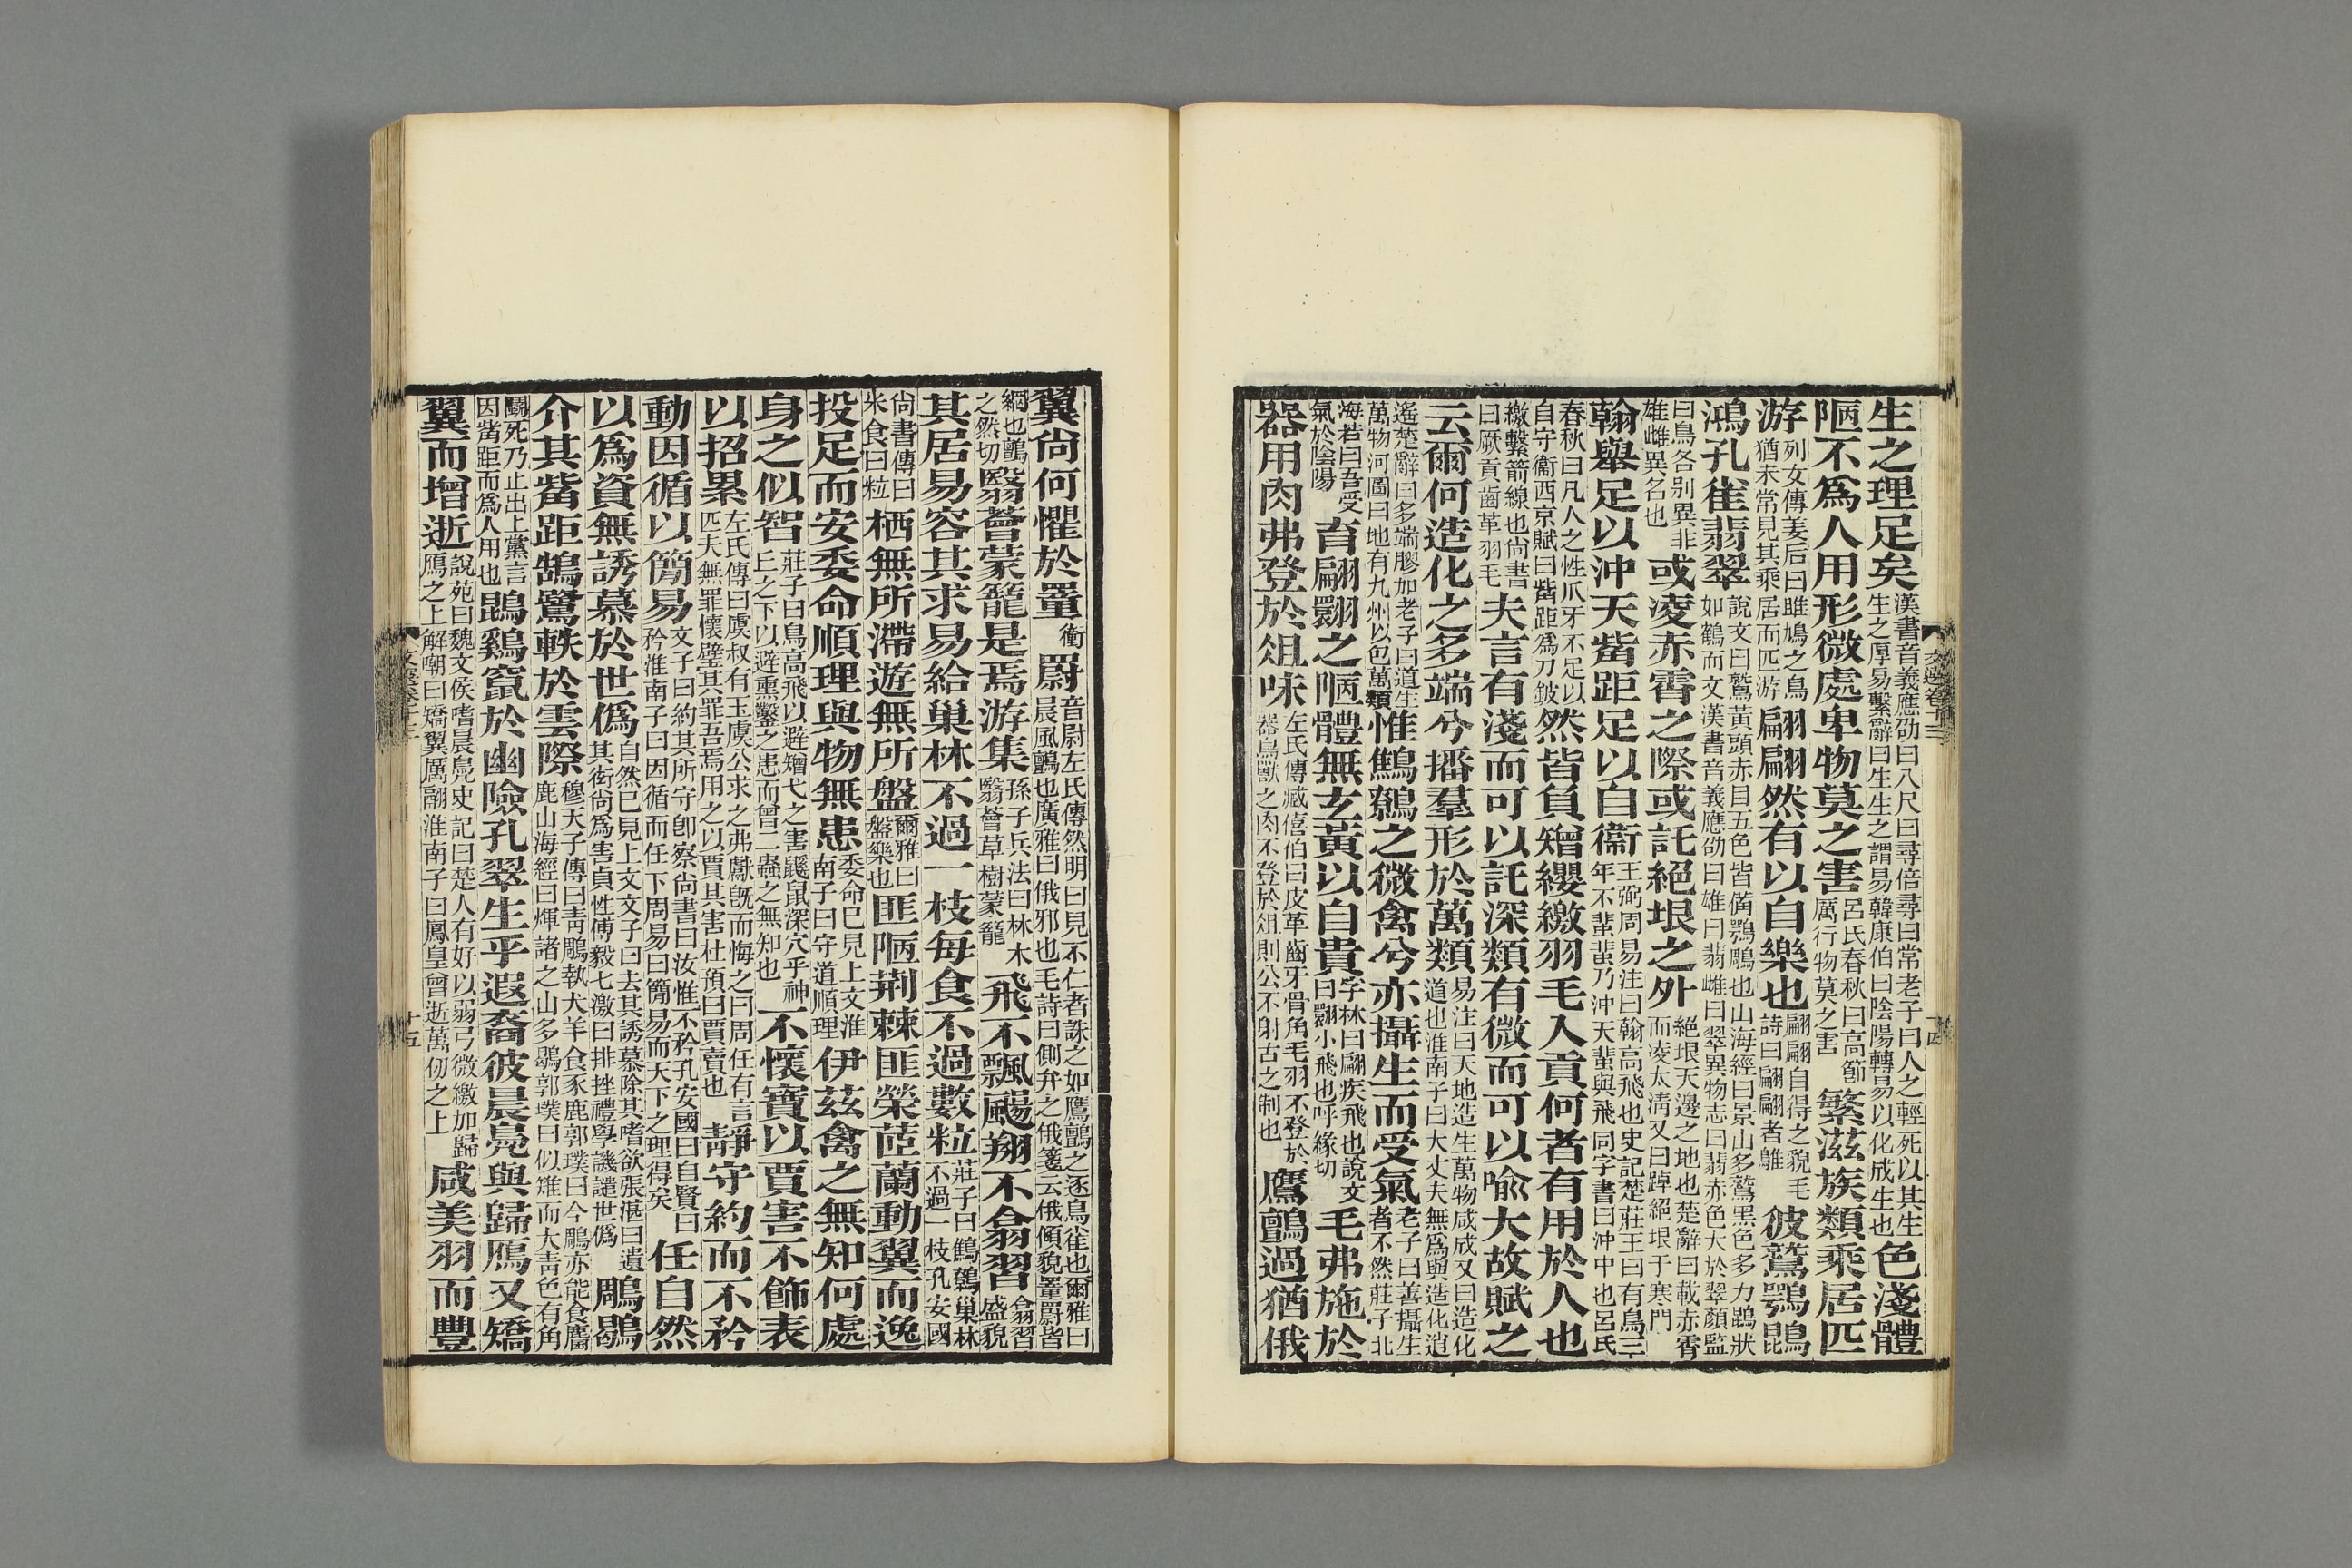 生之理足矣漢書音義應劭曰八尺曰尋倍尋曰常老子曰人之輕死以其生生之厚易繫辭曰生生之謂易韓康伯曰陰陽轉易以化成生也色淺體
陋不爲人用形微處卑物莫之害呂氏春秋曰高節厲行物莫之害繁滋族類乘居匹
游列女傳姜后曰雎鳩之鳥猶未常見其乘居而匹游翩翩然有以自樂也翩翩自得之貌毛詩曰翩翩者鵻彼鷲鶚鵾
鴻孔雀翡翠說文曰鷲黃頭赤目五色皆備鶚鵰也山海經曰景山多鷲黑色多力鵾狀如鶴而文漢書音義應劭曰雄曰翡雌曰翠異物志曰翡赤色大於翠顏監
曰鳥各别異非雄雌異名也或凌赤霄之際或託絕垠之外絕垠天邊之地也楚辭曰載赤霄而凌太淸又曰踔絕垠于寒門
翰舉足以沖天觜距足以自衞王弼周易注曰翰高飛也史記楚莊王曰有鳥三年不蜚蜚乃沖天蜚與飛同字書曰沖中也呂氏
春秋曰凡人之性爪牙不足以自守衞西京賦曰觜距爲刀鈹然皆負矰纓繳羽毛入貢何者有用於人也
繳繫箭線也尙書曰厥貢齒革羽毛夫言有淺而可以託深類有微而可以喻大故賦之
云爾何造化之多端兮播羣形於萬類易注曰天地造生萬物成成又曰造化道也淮南子曰大丈夫無爲與造化逍
遙楚辭曰多端膠加老子曰道生萬物河圖曰地有九州以包萬類惟鷦鷯之微禽兮亦攝生而受氣老子曰善攝生者不然莊子北
海若曰吾受氣於陰陽育翩翾之陋體無玄黃以自貴字林曰翩疾飛也說文曰翾小飛也呼緣切毛弗施於
器用肉弗登於俎味左氏傳臧僖伯曰皮革齒牙骨角毛羽不登於器鳥獸之肉不登於俎則公不射古之制也鷹鸇過猶俄
翼尙何懼於罿衝罻音尉左氏傳然明曰見不仁者誅之如鷹鸇之逐鳥雀也爾雅曰晨風鸇也廣雅曰俄邪也毛詩曰側弁之俄箋云俄傾貌罿罻皆
網也鸇之然切翳薈蒙籠是焉游集孫子兵法曰林木翳薈草樹蒙籠飛不飄颺翔不翕習翕習盛貌
其居易容其求易給巢林不過一枝每食不過數粒莊子曰鷦鷯巢林不過一枝孔安國
尙書傳曰米食曰粒栖無所滯遊無所盤爾雅曰盤樂也匪陋荆棘匪榮茝蘭動翼而逸
投足而安委命順理與物無患委命已見上文淮南子曰守道順理伊茲禽之無知何處
身之似智莊子曰鳥高飛以避矰弋之害鼷鼠深穴乎神丘之下以避熏鑿之患而曾二蟲之無知也不懷寶以賈害不飾表
以招累左氏傳曰虞叔有玉虞公求之弗獻旣而悔之曰周任有言匹夫無罪懷璧其罪吾焉用之以賈其害杜預曰賈賣也靜守約而不矜
動因循以簡易文子曰約其所守卽察尙書曰汝惟不矜孔安國曰自賢曰矜淮南子曰因循而任下周易曰簡易而天下之理得矣任自然
以爲資無誘慕於世僞自然已見上文文子曰去其誘慕除其嗜欲張湛曰遺其衒尙爲害貞性傅毅七激曰排挫禮學譏譴世僞鵰鶡
介其觜距鵠鷺軼於雲際穆天子傳曰靑鵰執犬羊食豕鹿郭璞曰今鵰亦能食麏鹿山海經曰煇諸之山多鶡郭璞曰似雉而大靑色有角
鬭死乃止出上黨言因觜距而爲人用也鵾鷄竄於幽險孔翠生乎遐裔彼晨鳧與歸鴈又矯
翼而增逝說苑曰魏文侯嗜晨鳧史記曰楚人有好以弱弓微繳加歸鴈之上解嘲曰矯翼厲翮淮南子曰鳳皇曾逝萬仞之上咸美羽而豐